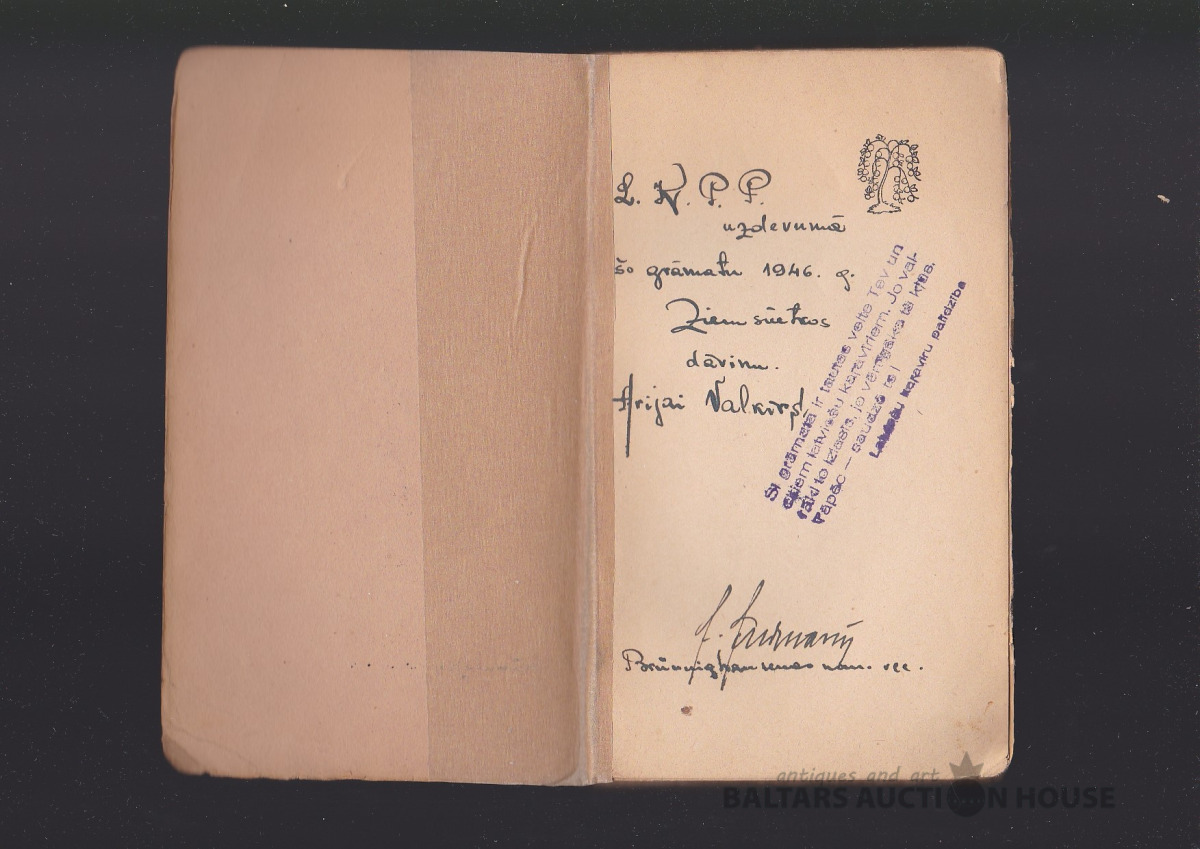 L. K. P. P.
uzdevumā
šo grāmatu 1946. g.
Ziemsvētkos
dāvinu.
Ārijai
Šī grāmata ir tautas velte Tev un
citiem latviešu karavīriem. Jo vai-
rāki to izlasīs, jo vērtīgāka tā kļūs.
Tāpēc — saudzē to!
Latviešu karavīru palīdzība
antiques and art
BALTARS AUCTION HOUSE